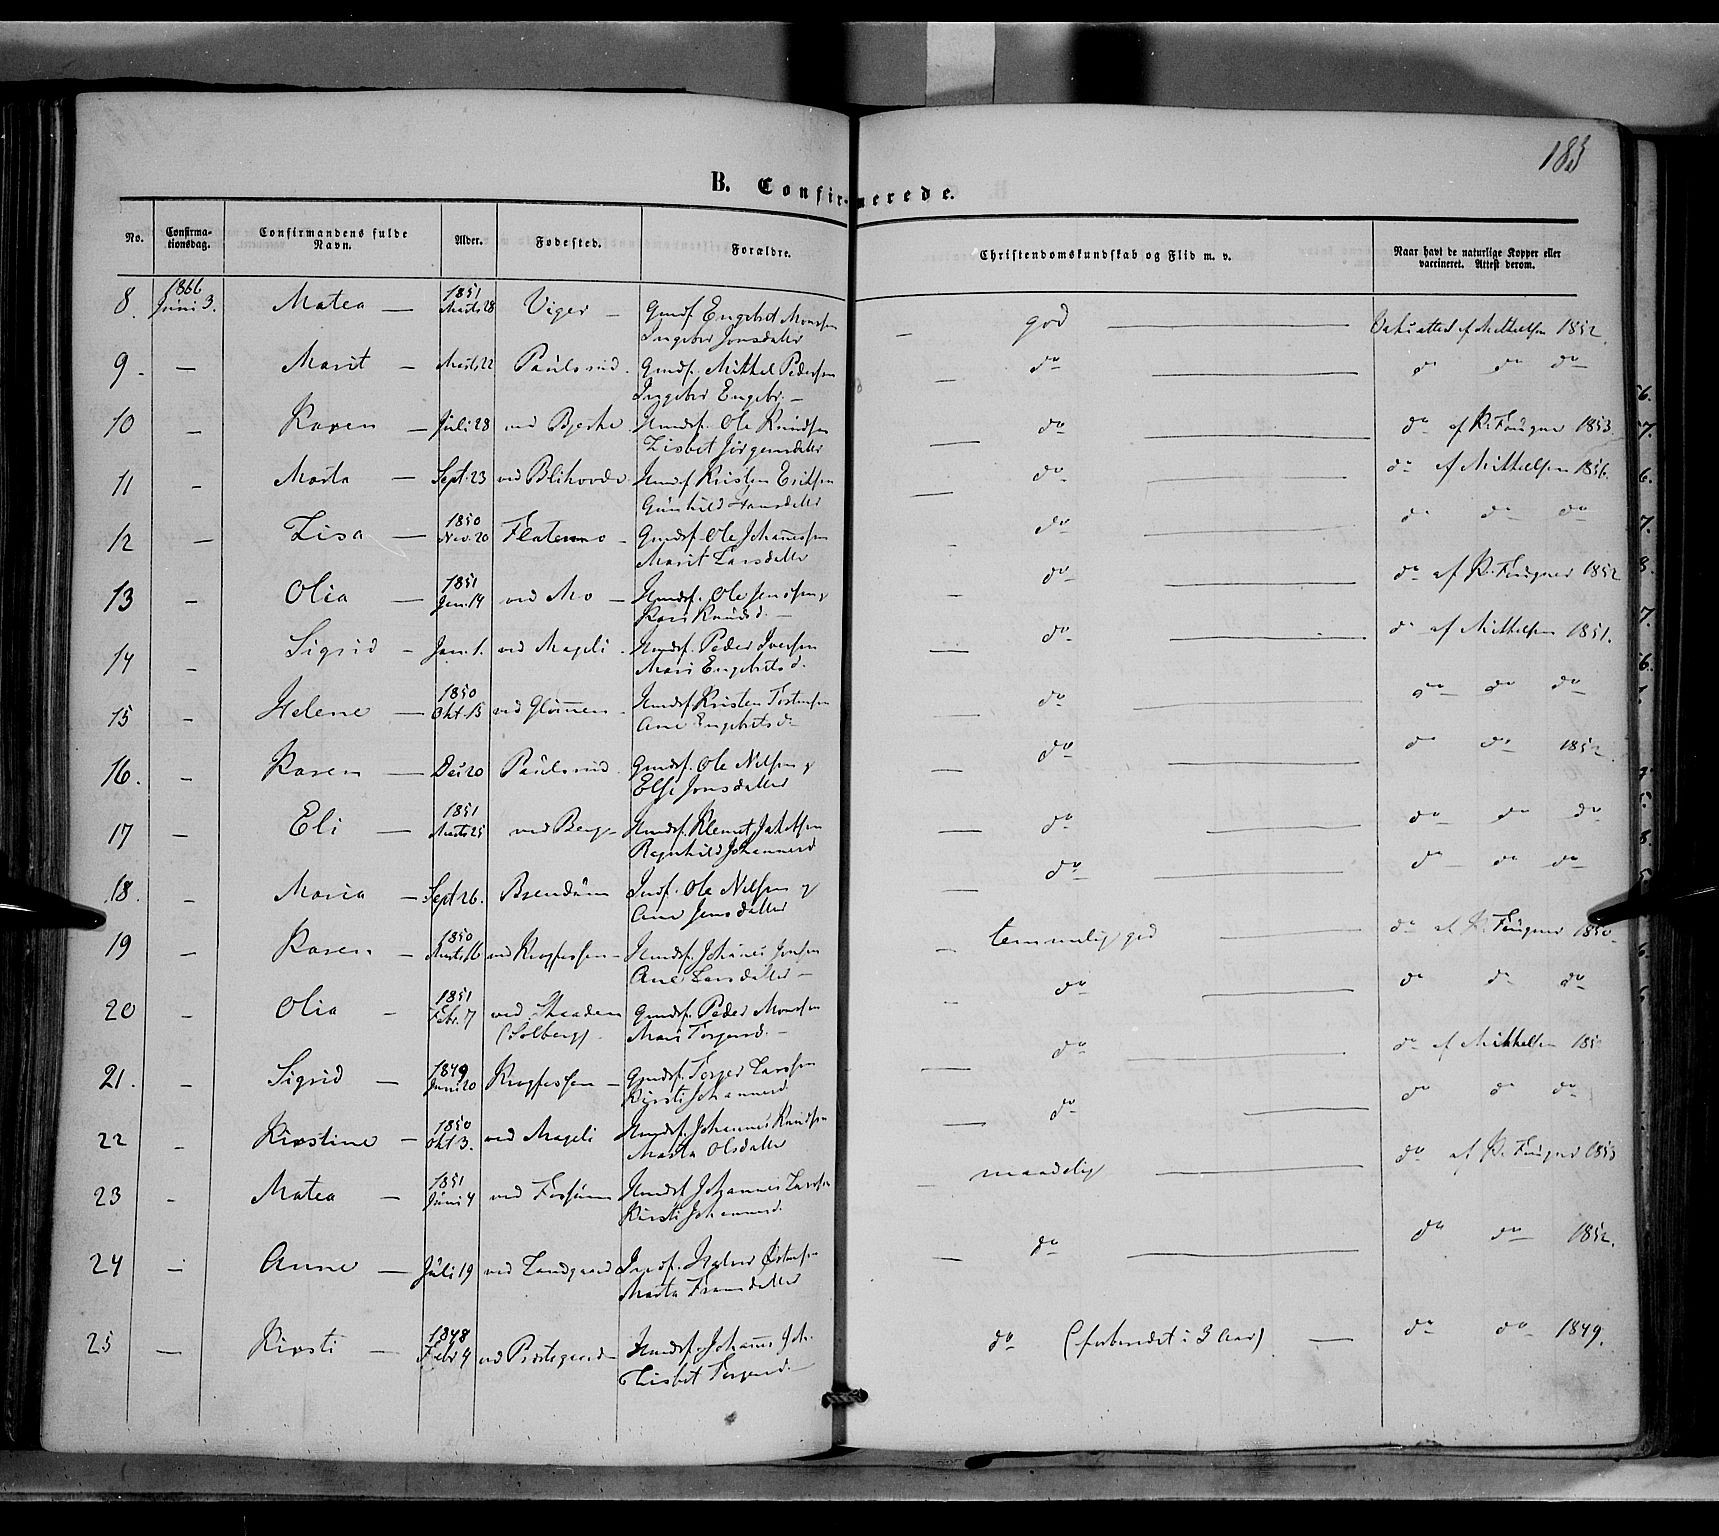 183
B. Confirmerede.
No. Confirmationsdag. Confirmandens fulde Navn. Alder. Fødested. Forældre. Christendomskundskab og Flid m. v. Naar havt de naturlige Kopper eller vaccineret. Attest derom.
8. 1866 Juni 3. Matea — 1851 Marts 28 Viger — Gmdf. Engebret Monsen — god — 1852.
Ingeber Jonsdatter
9. — Marit — Marts 22 Paulsrud. Gmdf. Mikkel Pedersen — do — do do do
Ingeber Engebr. —
10 — Karen — Juli 28 ved Bjerke Hmdf. Ole Knudsen — do — do af P. Faugner 1853.
Lisbet Jørgensdatter
11 — Marta — Sept. 23 ved Blihovde Hmdf Kristen Eriksen — do — do af Mikkelsen 1856.
Gunhild Hansdatter
12 — Lisa — 1850 Nov. 20 Flatemo — Gmdf. Ole Johannessen — do — do do do
Marit Larsdatter
13 — Olia — 1851 Jan. 14 ved Mo — Hmdf. Ole Jenssen — do — do af P. Faugner 1852
Kari Knudsd. —
14 — Sigrid — Jan. 1. ved Mageli. Hmdf. Peder Iversen — do — do af Mikkelsen 1851.
Mari Engebretsd.
15 — Helene — 1850 Okt. 13 ved Glømmen. Hmdf Kristen Torstensen — do — do do do
Ane Engebretsd
16. — Karen — Dec 20 Paulsrud. Gmdf. Ole Nilsen og — do — do do 1852.
Elsi Jonsdatter
17 — Eli — 1851 Marts 25 ved Berg — Hmdf. Klemet Jakobsen — do — do do do
Ragnhild Johannesd
18. — Maria — Sept 26. Brendum Indf. Ole Nilsen og — do — do do do
Ane Jensdatter
19 — Karen — 1850 Marts 16 ved Krogfossen — Hmdf. Johanes Jonsen — temmelig god — do af P. Faugner 1850.
Ane Larsdatter —
20 — Olia — 1851 Febr. 7 ved Skaaden Gmdf. Peder Monssen — do — do do do
(Solberg). Mari Torgersd. —
21. — Sigrid — 1849 Juni 20 Krogfossen — Gmdf. Torger Larssen — do — do af Mikkelsen
Kirsti Johannesd
22 — Kirstine — 1850 Okt 3. ved Mageli Hmdf. Johannes Knudsen — do — do do do
Marta Olsdatter
23 — Matea — 1851 Juni 4 ved Fossum Hmdf Johannes Larssen — maadelig — do af P. Faugner 1853
Kirsti Johannesd.
24 — Anne — Juli 19 ved Landgaard Indf. Østensen — do — do do 1852.
Marta Fransdatter
25 — Kirsti — 1848 Febr 4 ved Prestegaard — Hmdf. Johannes Joh. do (forberedet i 3 Aar) — do do 1849.
Lisbet Torgersd. —